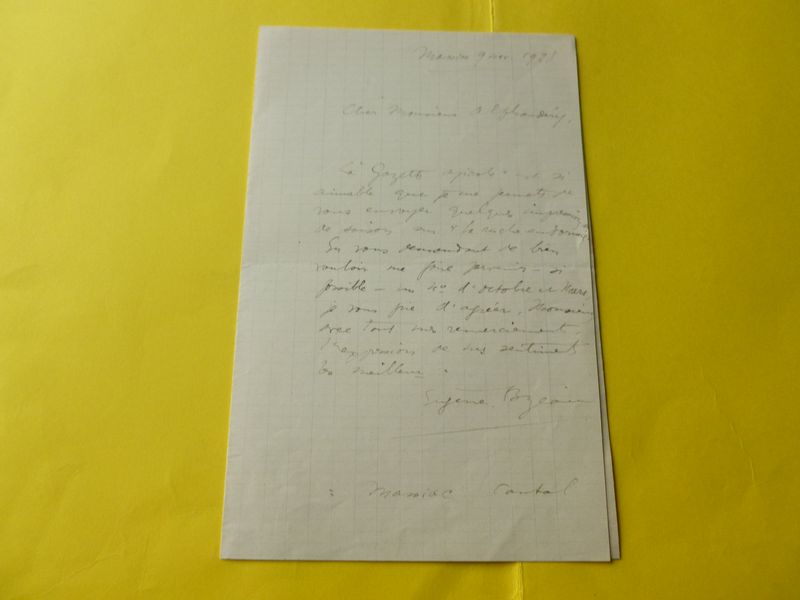 Massiac 9 nov. 19
Cher Monsieur
La Gazette apicole est si
aimable que je me permets de
vous envoyer quelques impressions
de saison sur "la ruche endormie"
En vous demandant de bien
vouloir me faire parvenir – si
possible – un N° d'octobre et
je vous prie d'agréer, Monsieur,
avec tous mes remerciements,
l'expression de mes sentiments
les meilleurs.
Eugène
Massiac Cantal